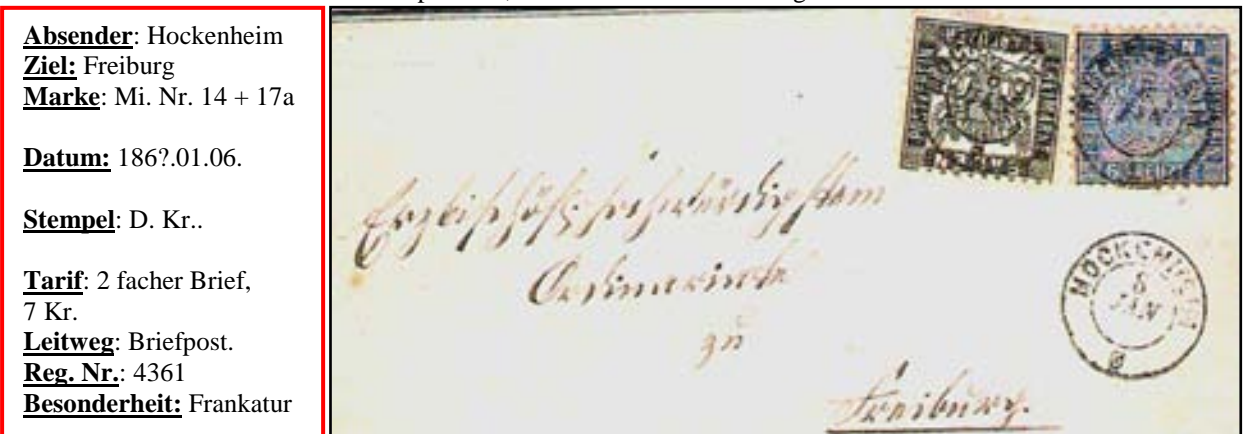 Absender: Hockenheim
Ziel: Freiburg
Marke: Mi. Nr. 14 + 17a
Datum: 186?.01.06.
Stempel: D. Kr..
Tarif: 2 facher Brief,
7 Kr.
Leitweg: Briefpost.
Reg. Nr.: 4361
Besonderheit: Frankatur
Erzbischöfl. hochwürdigstem
Ordinariate
zu
Freiburg.
HOCKENHEIM
JAN